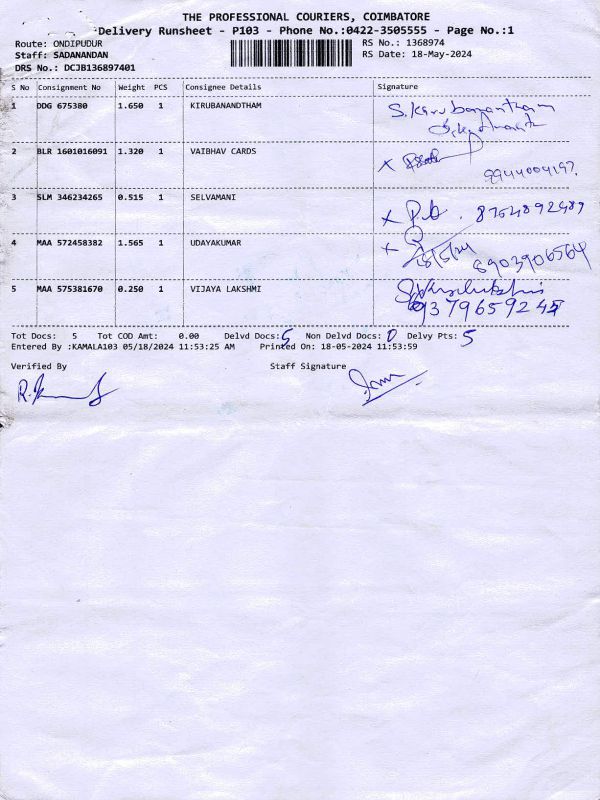 THE PROFESSIONAL COURIERS, COIMBATORE
Delivery Runsheet - P103 - Phone No.:0422-3505555 - Page No.:1
Route: ONDIPUDUR RS No.: 1368974
Staff: SADANANDAN RS Date: 18-May-2024
DRS No.: DCJB136897401
S No Consignment No Weight PCS Consignee Details Signature
1 DDG 675380 1.650 1 KIRUBANANDTHAM S.Kirubanantham
2 BLR 1601016091 1.320 1 VAIBHAV CARDS X
9944004197
3 SLM 346234265 0.515 1 SELVAMANI X P.b . 8754892489
4 MAA 572458382 1.565 1 UDAYAKUMAR X
18/5/24 8903906564
5 MAA 575381670 0.250 1 VIJAYA LAKSHMI
9379659245
Tot Docs: 5 Tot COD Amt: 0.00 Delvd Docs: 5 Non Delvd Docs: 0 Delvy Pts: 5
Entered By :KAMALA103 05/18/2024 11:53:25 AM Printed On: 18-05-2024 11:53:59
Verified By Staff Signature